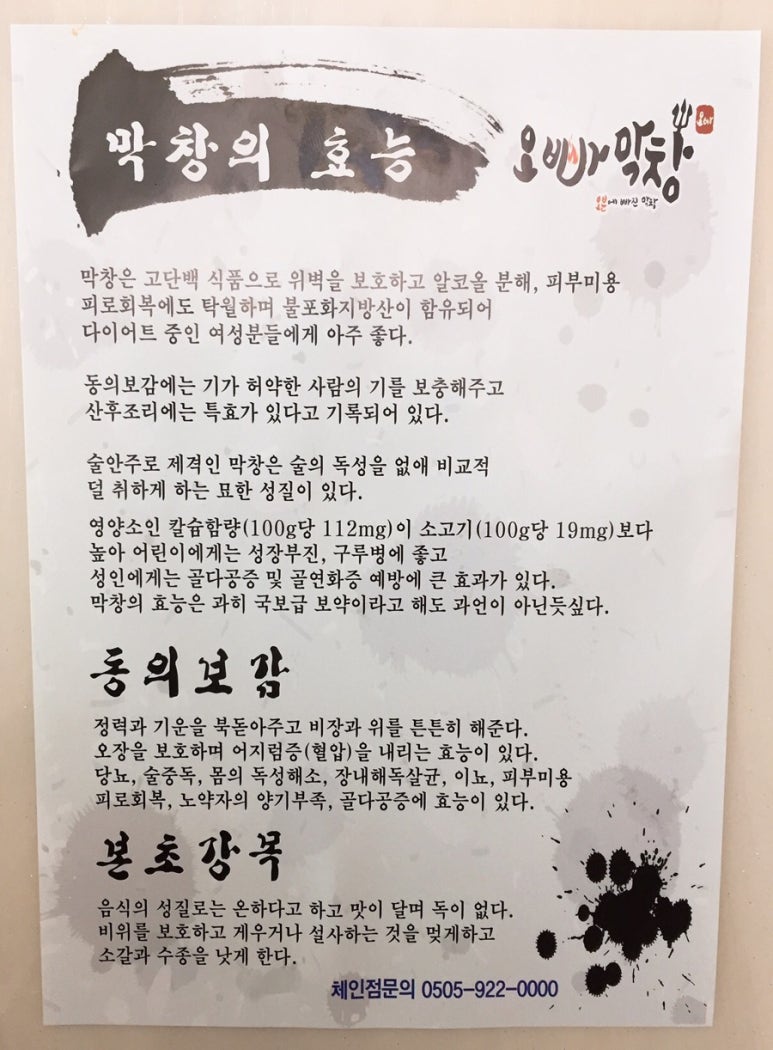 막창의 효능
오빠막창
오븐에 빠진 막창
막창은 고단백 식품으로 위벽을 보호하고 알코올 분해, 피부미용
피로회복에도 탁월하며 불포화지방산이 함유되어
다이어트 중인 여성분들에게 아주 좋다.
동의보감에는 기가 허약한 사람의 기를 보충해주고
산후조리에는 특효가 있다고 기록되어 있다.
술안주로 제격인 막창은 술의 독성을 없애 비교적
덜 취하게 하는 묘한 성질이 있다.
영양소인 칼슘함량(100g당 112mg)이 소고기(100g당 19mg)보다
높아 어린이에게는 성장부진, 구루병에 좋고
성인에게는 골다공증 및 골연화증 예방에 큰 효과가 있다.
막창의 효능은 과히 국보급 보약이라고 해도 과언이 아닌듯싶다.
동의보감
정력과 기운을 북돋아주고 비장과 위를 튼튼히 해준다.
오장을 보호하며 어지럼증(혈압)을 내리는 효능이 있다.
당뇨, 술중독, 몸의 독성해소, 장내해독살균, 이뇨, 피부미용
피로회복, 노약자의 양기부족, 골다공증에 효능이 있다.
본초강목
음식의 성질로는 온하다고 하고 맛이 달며 독이 없다.
비위를 보호하고 게우거나 설사하는 것을 멎게하고
소갈과 수종을 낫게 한다.
체인점문의 0505-922-0000